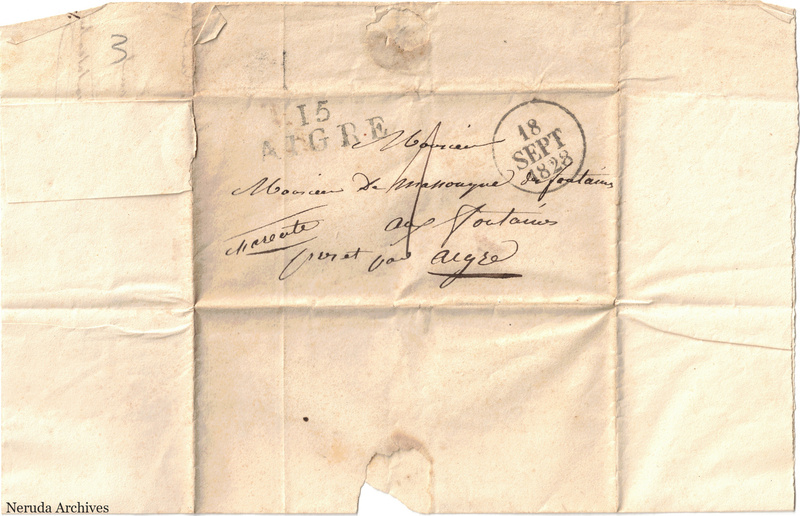 3
15
AIGRE
18
SEPT
1828
Monsieur
Monsieur De Massougne des fontaines
aux fontaines
par aigre
Neruda Archives